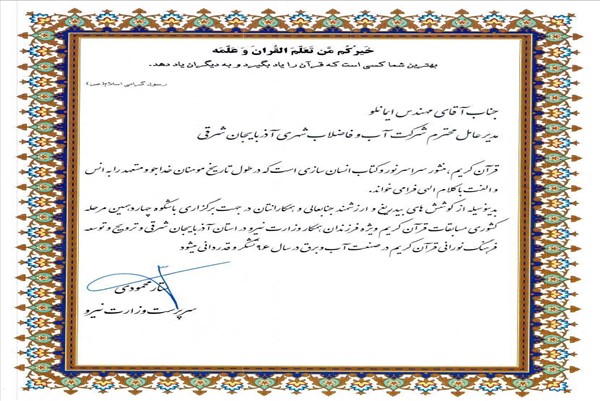 خَیرُکُم مَّن تَعَلَّمَ القُرانَ وَ عَلَّمَه
بهترین شما کسی است که قرآن را یاد بگیرد و به دیگران یاد دهد.
رسول گرامی اسلام(ص)
جناب آقای مهندس ایمانلو
مدیرعامل محترم شرکت آب و فاضلاب شهری آذربایجان شرقی
قرآن کریم، منشور سراسر نور و کتاب انسان سازی است که در طول تاریخ مومنان خداجو و متعهد را به انس
و الفت با کلام الهی فرا می خواند.
بدینوسیله از کوشش های بیدریغ و ارزشمند جنابعالی و همکارانتان در جهت برگزاری باشکوه چهاردهمین مرحله
کشوری مسابقات قرآن کریم ویژه فرزندان همکار وزارت نیرو در استان آذربایجان شرقی و ترویج و توسعه
فرهنگ نورانی قرآن کریم در صنعت آب و برق در سال ۹۶ تشکر و قدردانی میشود
ستار محمودی
سرپرست وزارت نیرو